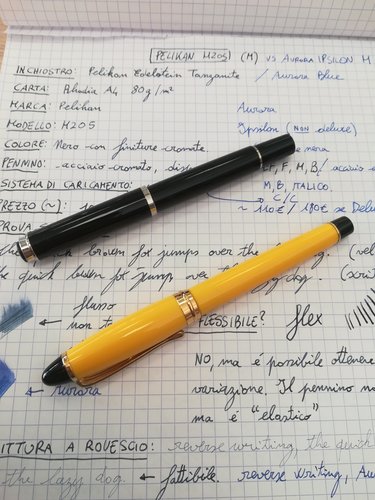 PELIKAN M205 (M) VS AURORA IPSILON M
INCHIOSTRO: Pelikan Edelstein Tanzanite / Aurora Blue
CARTA: Rhodia A4 80g/m²
MARCA: Pelikan Aurora
MODELLO: M205 Ipsilon (NON deluxe)
COLORE: Nero con finiture cromate nera
PENNINO: acciaio cromato, F, M, B/ acciaio
M, B, ITALICO.
SISTEMA DI CARICAMENTO: C/C
PREZZO (~): ~ 110€ / 180€ se Delu
PROVA
brown fox jumps over the (vel
the quick brown fox jumps over dog. (scrit
flusso
non FLESSIBILE? flex
NO, ma è possibile ottenere
← Aurora variazione. Il pennino no
ma è "elastico"
ITTURA A ROVESCIO: reverse writing, the quick
the lazy dog. ← fattibile. reverse writing, Au